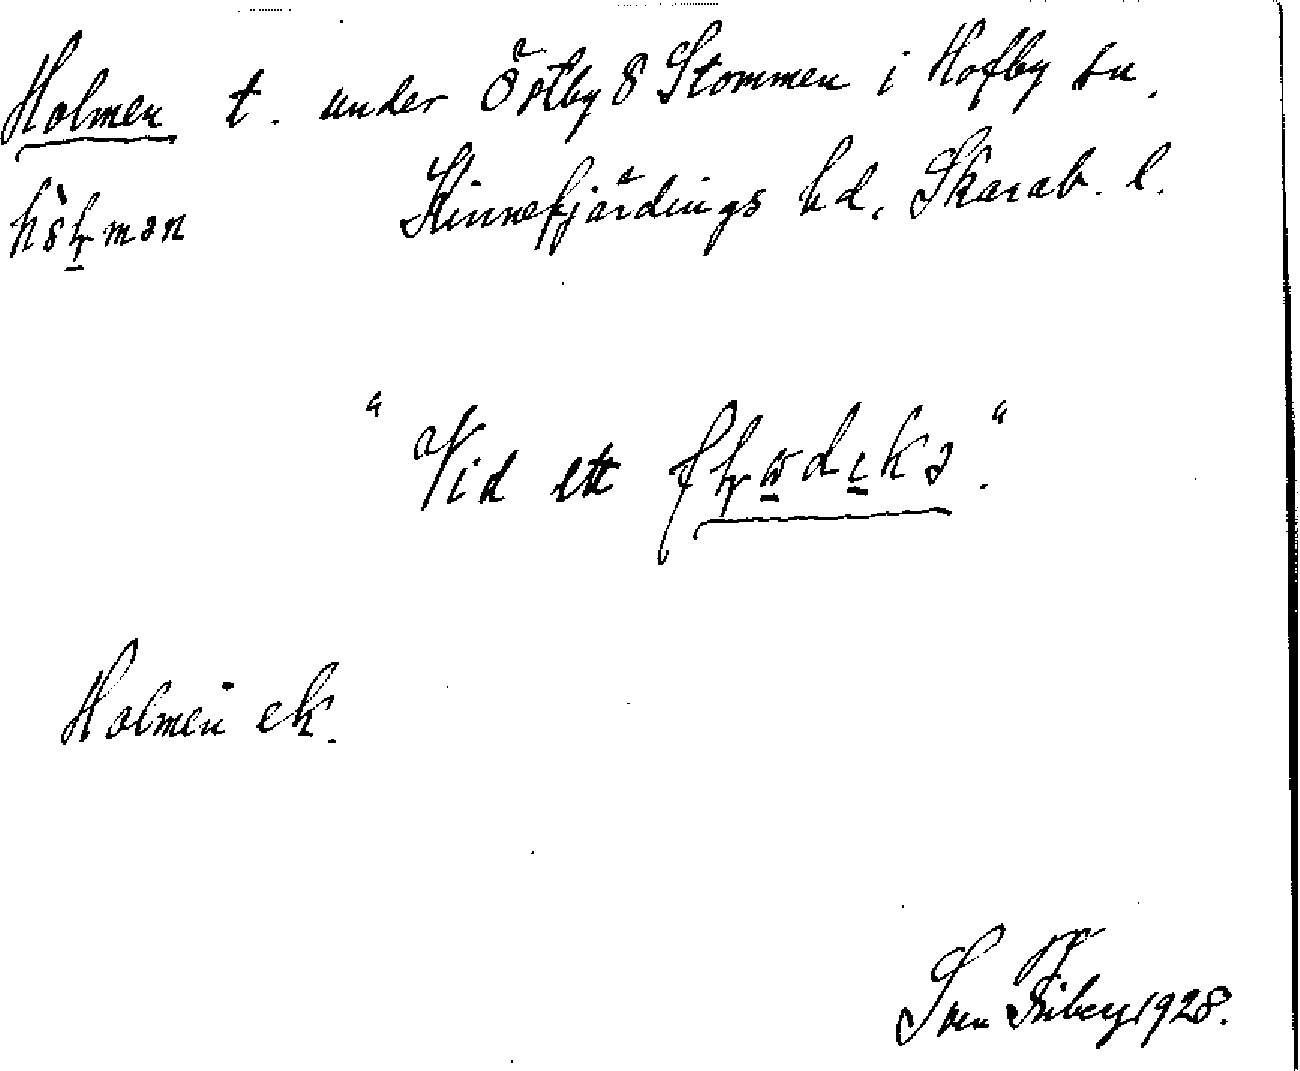 Holmen t. under Östby 8 Stommen i Hofby sn.
Kinnefjärdings hd. Skarab. l.
"Vid ett
Holmen ek.
Sven Friberg 1928.